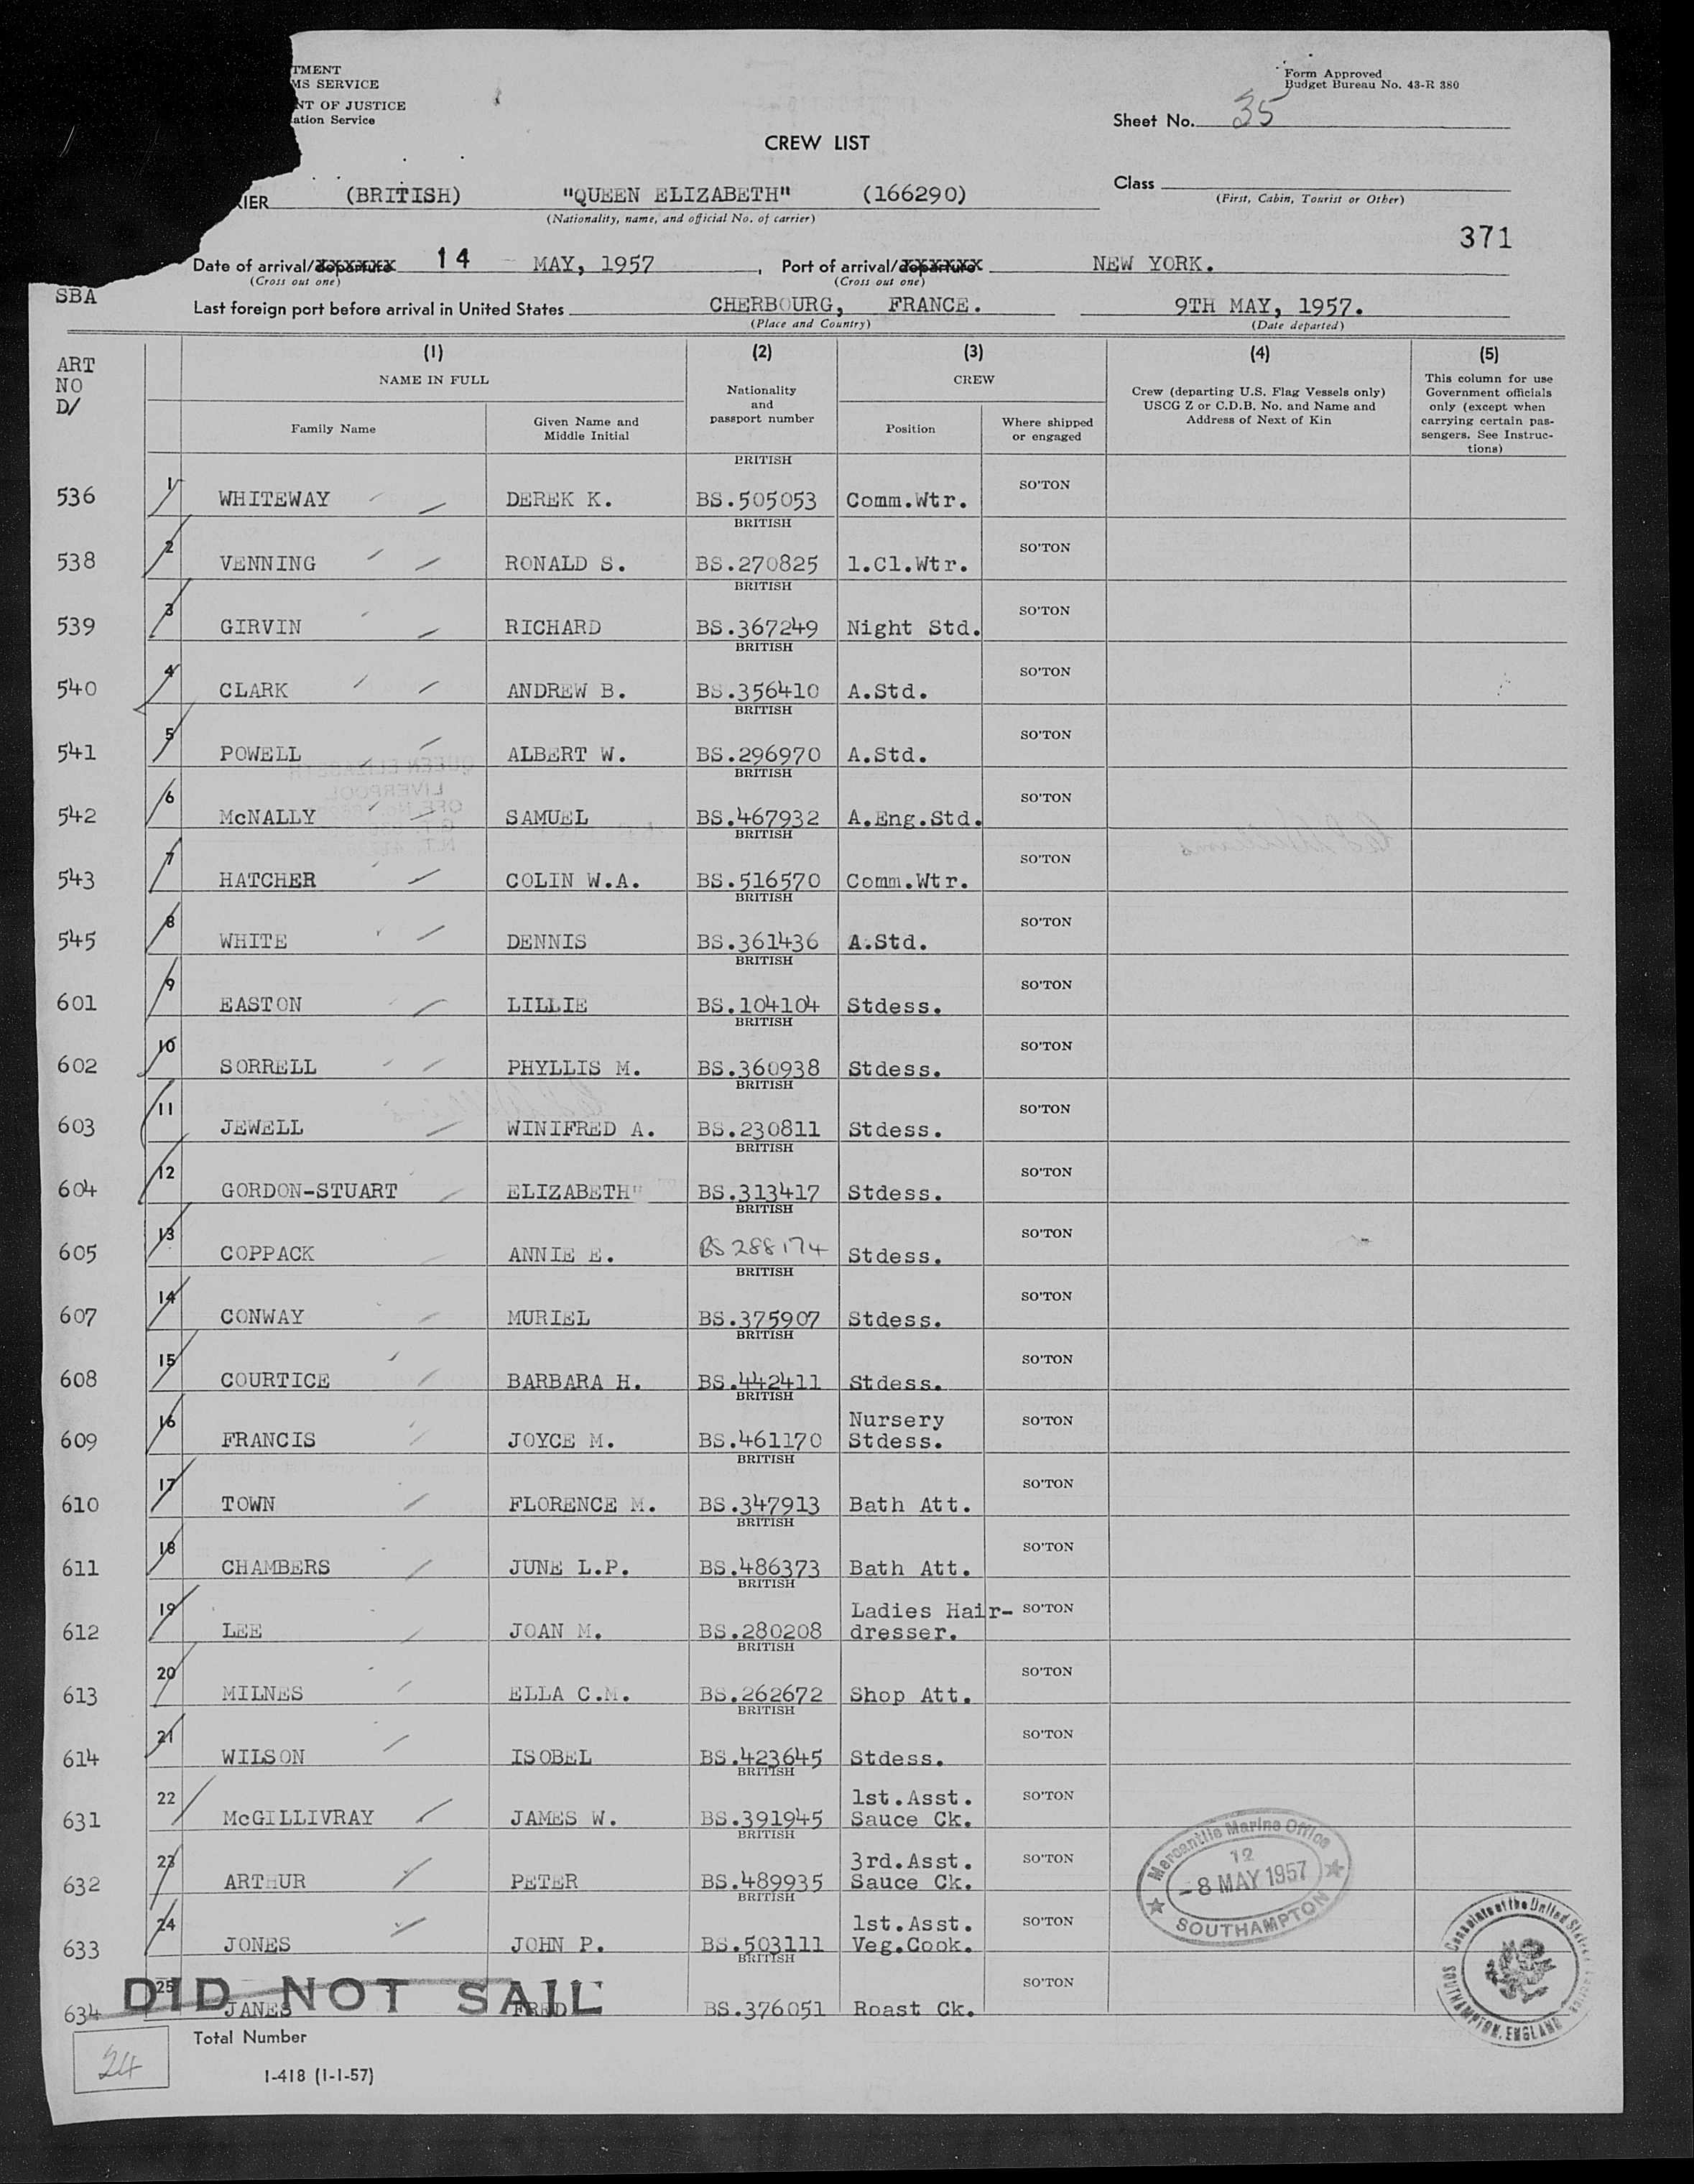 TMENT
MS SERVICE
NT OF JUSTICE
ation Service
Form Approved
Budget Bureau No. 43-R 380
Sheet No. 35
CREW LIST
RIER (BRITISH) "QUEEN ELIZABETH" (166290)
(Nationality, name, and official No. of carrier)
Class
(First, Cabin, Tourist or Other)
371
Date of arrival/departure 14 MAY, 1957, Port of arrival/departure NEW YORK.
(Cross out one) (Cross out one)
SBA
Last foreign port before arrival in United States CHERBOURG, FRANCE. 9TH MAY, 1957.
(Place and Country) (Date departed)
ART
NO
D/
(1) (2) (3) (4) (5)
NAME IN FULL
Family Name
Given Name and
Middle Initial
Nationality
and
passport number
CREW
Position
Where shipped
or engaged
Crew (departing U.S. Flag Vessels only)
USCG Z or C.D.B. No. and Name and
Address of Next of Kin
This column for use
Government officials
only (except when
carrying certain pas-
sengers. See Instruc-
tions)
BRITISH
536 1 WHITEWAY DEREK K. BS.505053 Comm.Wtr. SO'TON
BRITISH
538 2 VENNING RONALD S. BS.270825 1.Cl.Wtr. SO'TON
BRITISH
539 3 GIRVIN RICHARD BS.367249 Night Std. SO'TON
BRITISH
540 4 CLARK ANDREW B. BS.356410 A.Std. SO'TON
BRITISH
541 5 POWELL ALBERT W. BS.296970 A.Std. SO'TON
BRITISH
542 6 McNALLY SAMUEL BS.467932 A.Eng.Std. SO'TON
BRITISH
543 7 HATCHER COLIN W.A. BS.516570 Comm.Wtr. SO'TON
BRITISH
545 8 WHITE DENNIS BS.361436 A.Std. SO'TON
BRITISH
601 9 EASTON LILLIE BS.104104 Stdess. SO'TON
BRITISH
602 10 SORRELL PHYLLIS M. BS.360938 Stdess. SO'TON
BRITISH
603 11 JEWELL WINIFRED A. BS.230811 Stdess. SO'TON
BRITISH
604 12 GORDON-STUART ELIZABETH" BS.313417 Stdess. SO'TON
BRITISH
605 13 COPPACK ANNIE E. BS 288174 Stdess. SO'TON
BRITISH
607 14 CONWAY MURIEL BS.375907 Stdess. SO'TON
BRITISH
608 15 COURTICE BARBARA H. BS.442411 Stdess. SO'TON
BRITISH
Nursery
609 16 FRANCIS JOYCE M. BS.461170 Stdess. SO'TON
BRITISH
610 17 TOWN FLORENCE M. BS.347913 Bath Att. SO'TON
BRITISH
611 18 CHAMBERS JUNE L.P. BS.486373 Bath Att. SO'TON
BRITISH
Ladies Hair-
612 19 LEE JOAN M. BS.280208 dresser. SO'TON
BRITISH
613 20 MILNES ELLA C.M. BS.262672 Shop Att. SO'TON
BRITISH
614 21 WILSON ISOBEL BS.423645 Stdess. SO'TON
BRITISH
1st.Asst.
631 22 McGILLIVRAY JAMES W. BS.391945 Sauce Ck. SO'TON
BRITISH
3rd.Asst.
632 23 ARTHUR PETER BS.489935 Sauce Ck. SO'TON
BRITISH
1st.Asst.
633 24 JONES JOHN P. BS.503111 Veg.Cook. SO'TON
BRITISH
634 25 JANES FRED BS.376051 Roast Ck. SO'TON
DID NOT SAIL
Mercantile Marine Office
12
-8 MAY 1957
SOUTHAMPTON
Consulate of the United States
SOUTHAMPTON, ENGLAND
Total Number
24
I-418 (1-1-57)